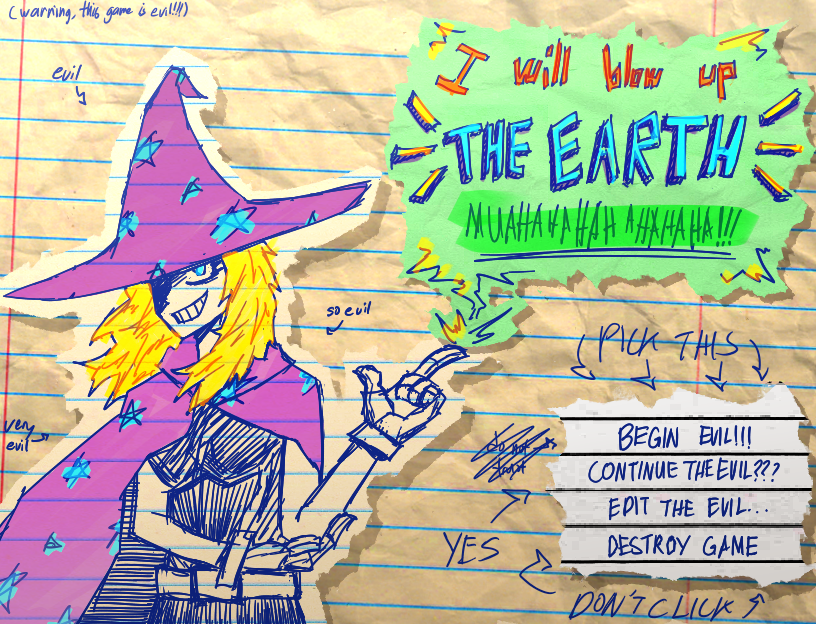 (warning, this game is evil!!!)
evil
I will blow up
THE EARTH
MUAHAHAHAH AHAHAHA!!!
so evil
PICK THIS
very
evil
do not
trust
BEGIN EVIL!!!
CONTINUE THE EVIL???
EDIT THE EVIL...
YES
DESTROY GAME
DON'T CLICK